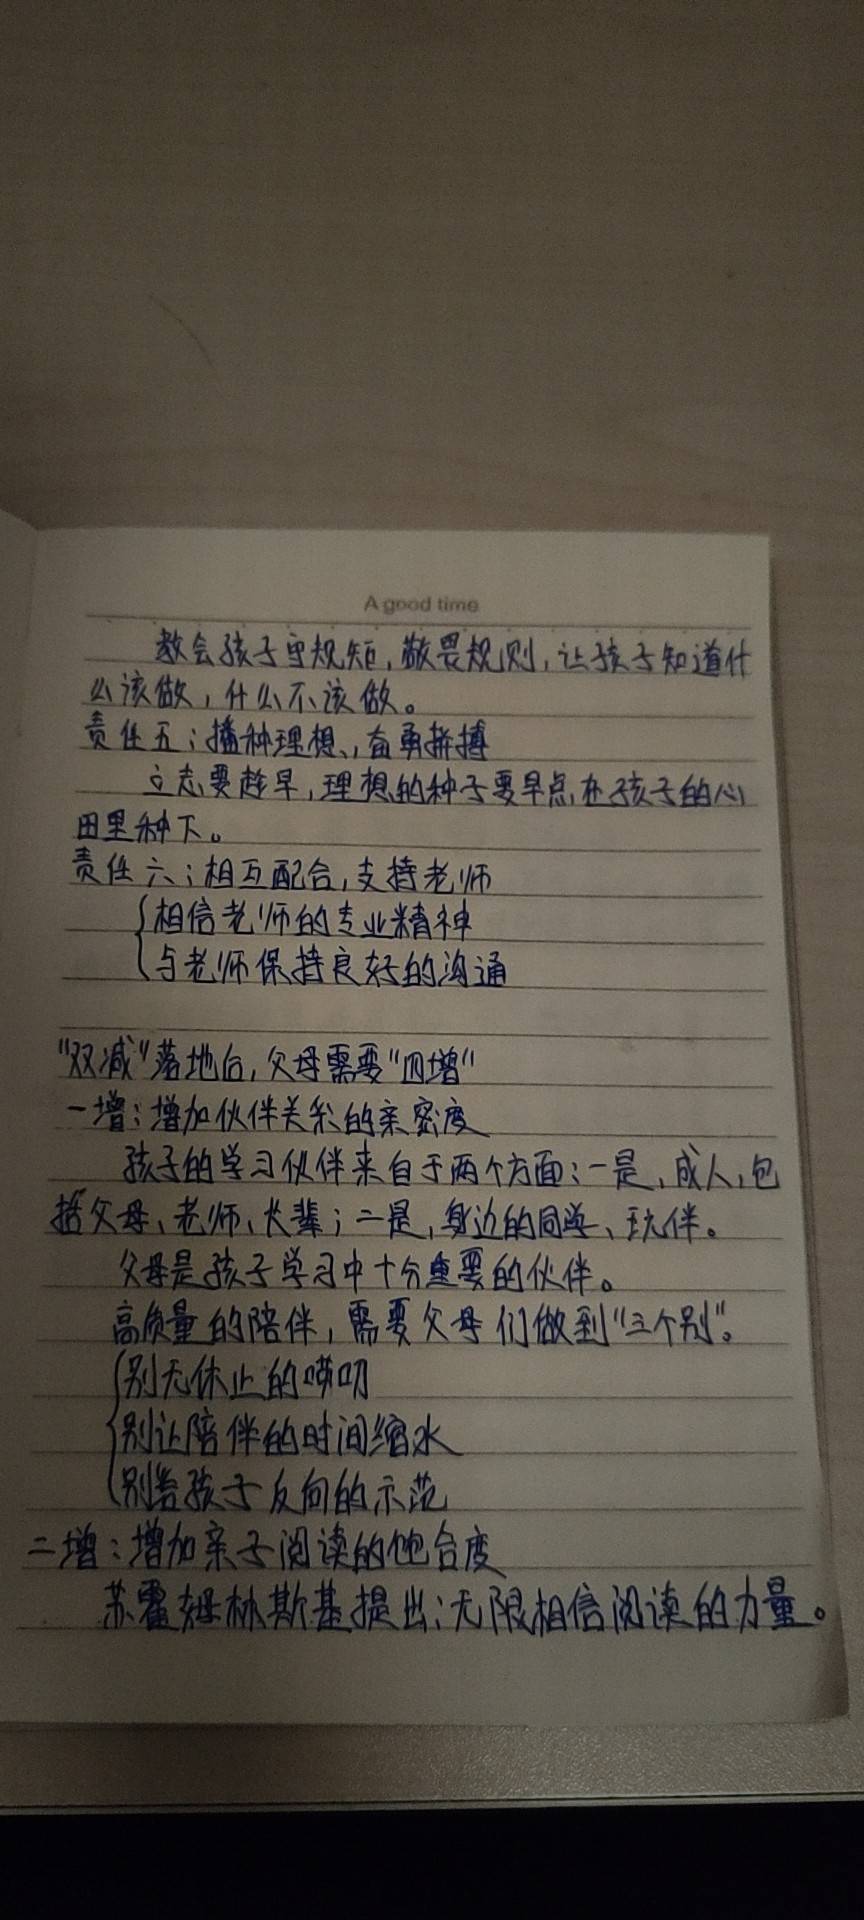 A good time
教会孩子守规矩，敬畏规则，让孩子知道什
么该做，什么不该做。
责任五：播种理想，奋勇拼搏
立志要趁早，理想的种子要早点在孩子的心
田里种下。
责任六：相互配合，支持老师
相信老师的专业精神
与老师保持良好的沟通
“双减”落地后，父母需要“四增”
一增：增加伙伴关系的亲密度
孩子的学习伙伴来自于两个方面：一是，成人，包
括父母、老师、长辈；二是，身边的同学、玩伴。
父母是孩子学习中十分重要的伙伴。
高质量的陪伴，需要父母们做到“三个别”。
别无休止的唠叨
别让陪伴的时间缩水
别给孩子反向的示范
二增：增加亲子阅读的饱合度
苏霍姆林斯基提出：无限相信阅读的力量。